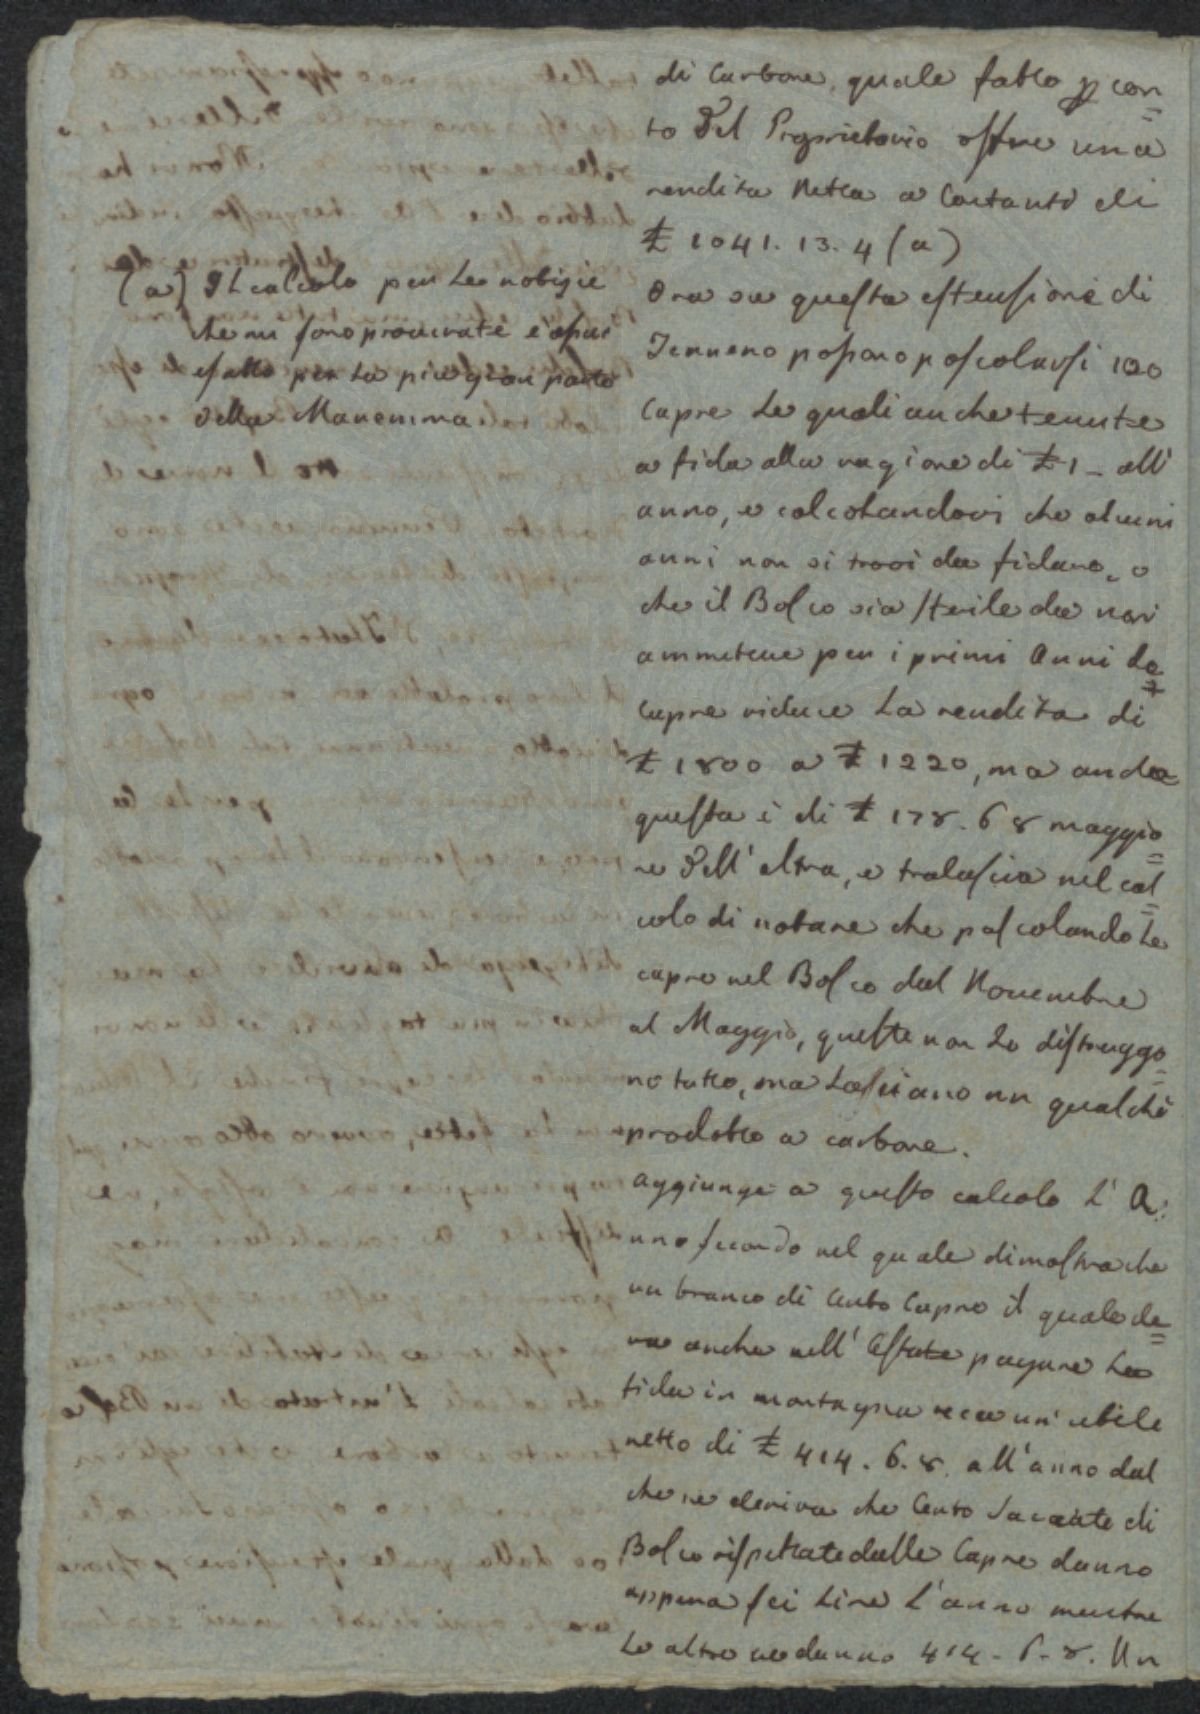 di Carbone, quale fatto p con=
to del Proprietario offre una
rendita Netta a Contanti di
£ 1041. 13. 4 (a)
Ora su questa estensione di
Terreno possono pascolarsi 120
Capre Le quali anche tenute
a fida alla ragione di £ 1 _ all'
anno, e calcolandovi che alcuni
anni non si trovi da fidare, o
che il Bosco sia sterile da non
ammettere per i primi Anni Le=
Capre riduce La rendita di
£ 1800 a £ 1220, ma anche
questa è di £ 178. 6 8 maggio=
re dell' altra, e tralascia nel cal=
colo di notare che pascolando Le
capre nel Bosco dal Novembre
al Maggio, queste non Lo distruggo=
no tutto, ma Lasciano un qualche
prodotto a carbone.
Aggiunge a questo calcolo L' A:
uno secondo nel quale dimostra che
un branco di Cento Capre il quale de=
va anche nell' Estate pagare La
fida in montagna reca un' utile
netto di £ 414. 6. 8. all' anno dal
che ne deriva che Cento Saccate di
Bosco rispettate dalle Capre danno
appena sei Lire L' anno mentre
Le altre ne danno 414 - 6 - 8. Un
(a) Il calcolo per Le notizie
che mi sono procurate è assai
esatto per La più gran parte
della Maremma